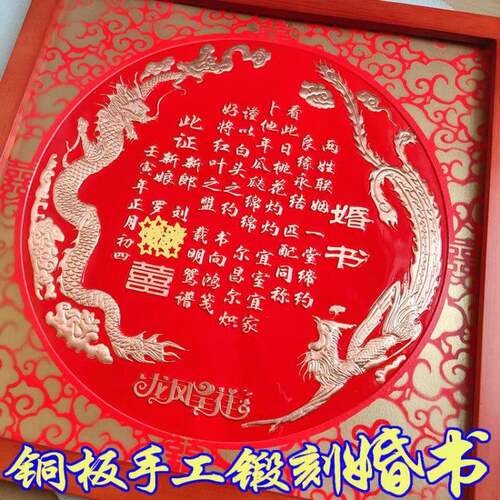 婚书
两姓联姻 一堂缔约
良缘永结 匹配同称
看此日桃花灼灼 宜室宜家
卜他年瓜瓞绵绵 尔昌尔炽
谨以白头之约 书向鸿笺
好将红叶之盟 载明鸳谱
此证
新郎 刘
新娘 罗
壬寅年正月初四
囍
龙凤呈祥
铜板手工锻刻婚书